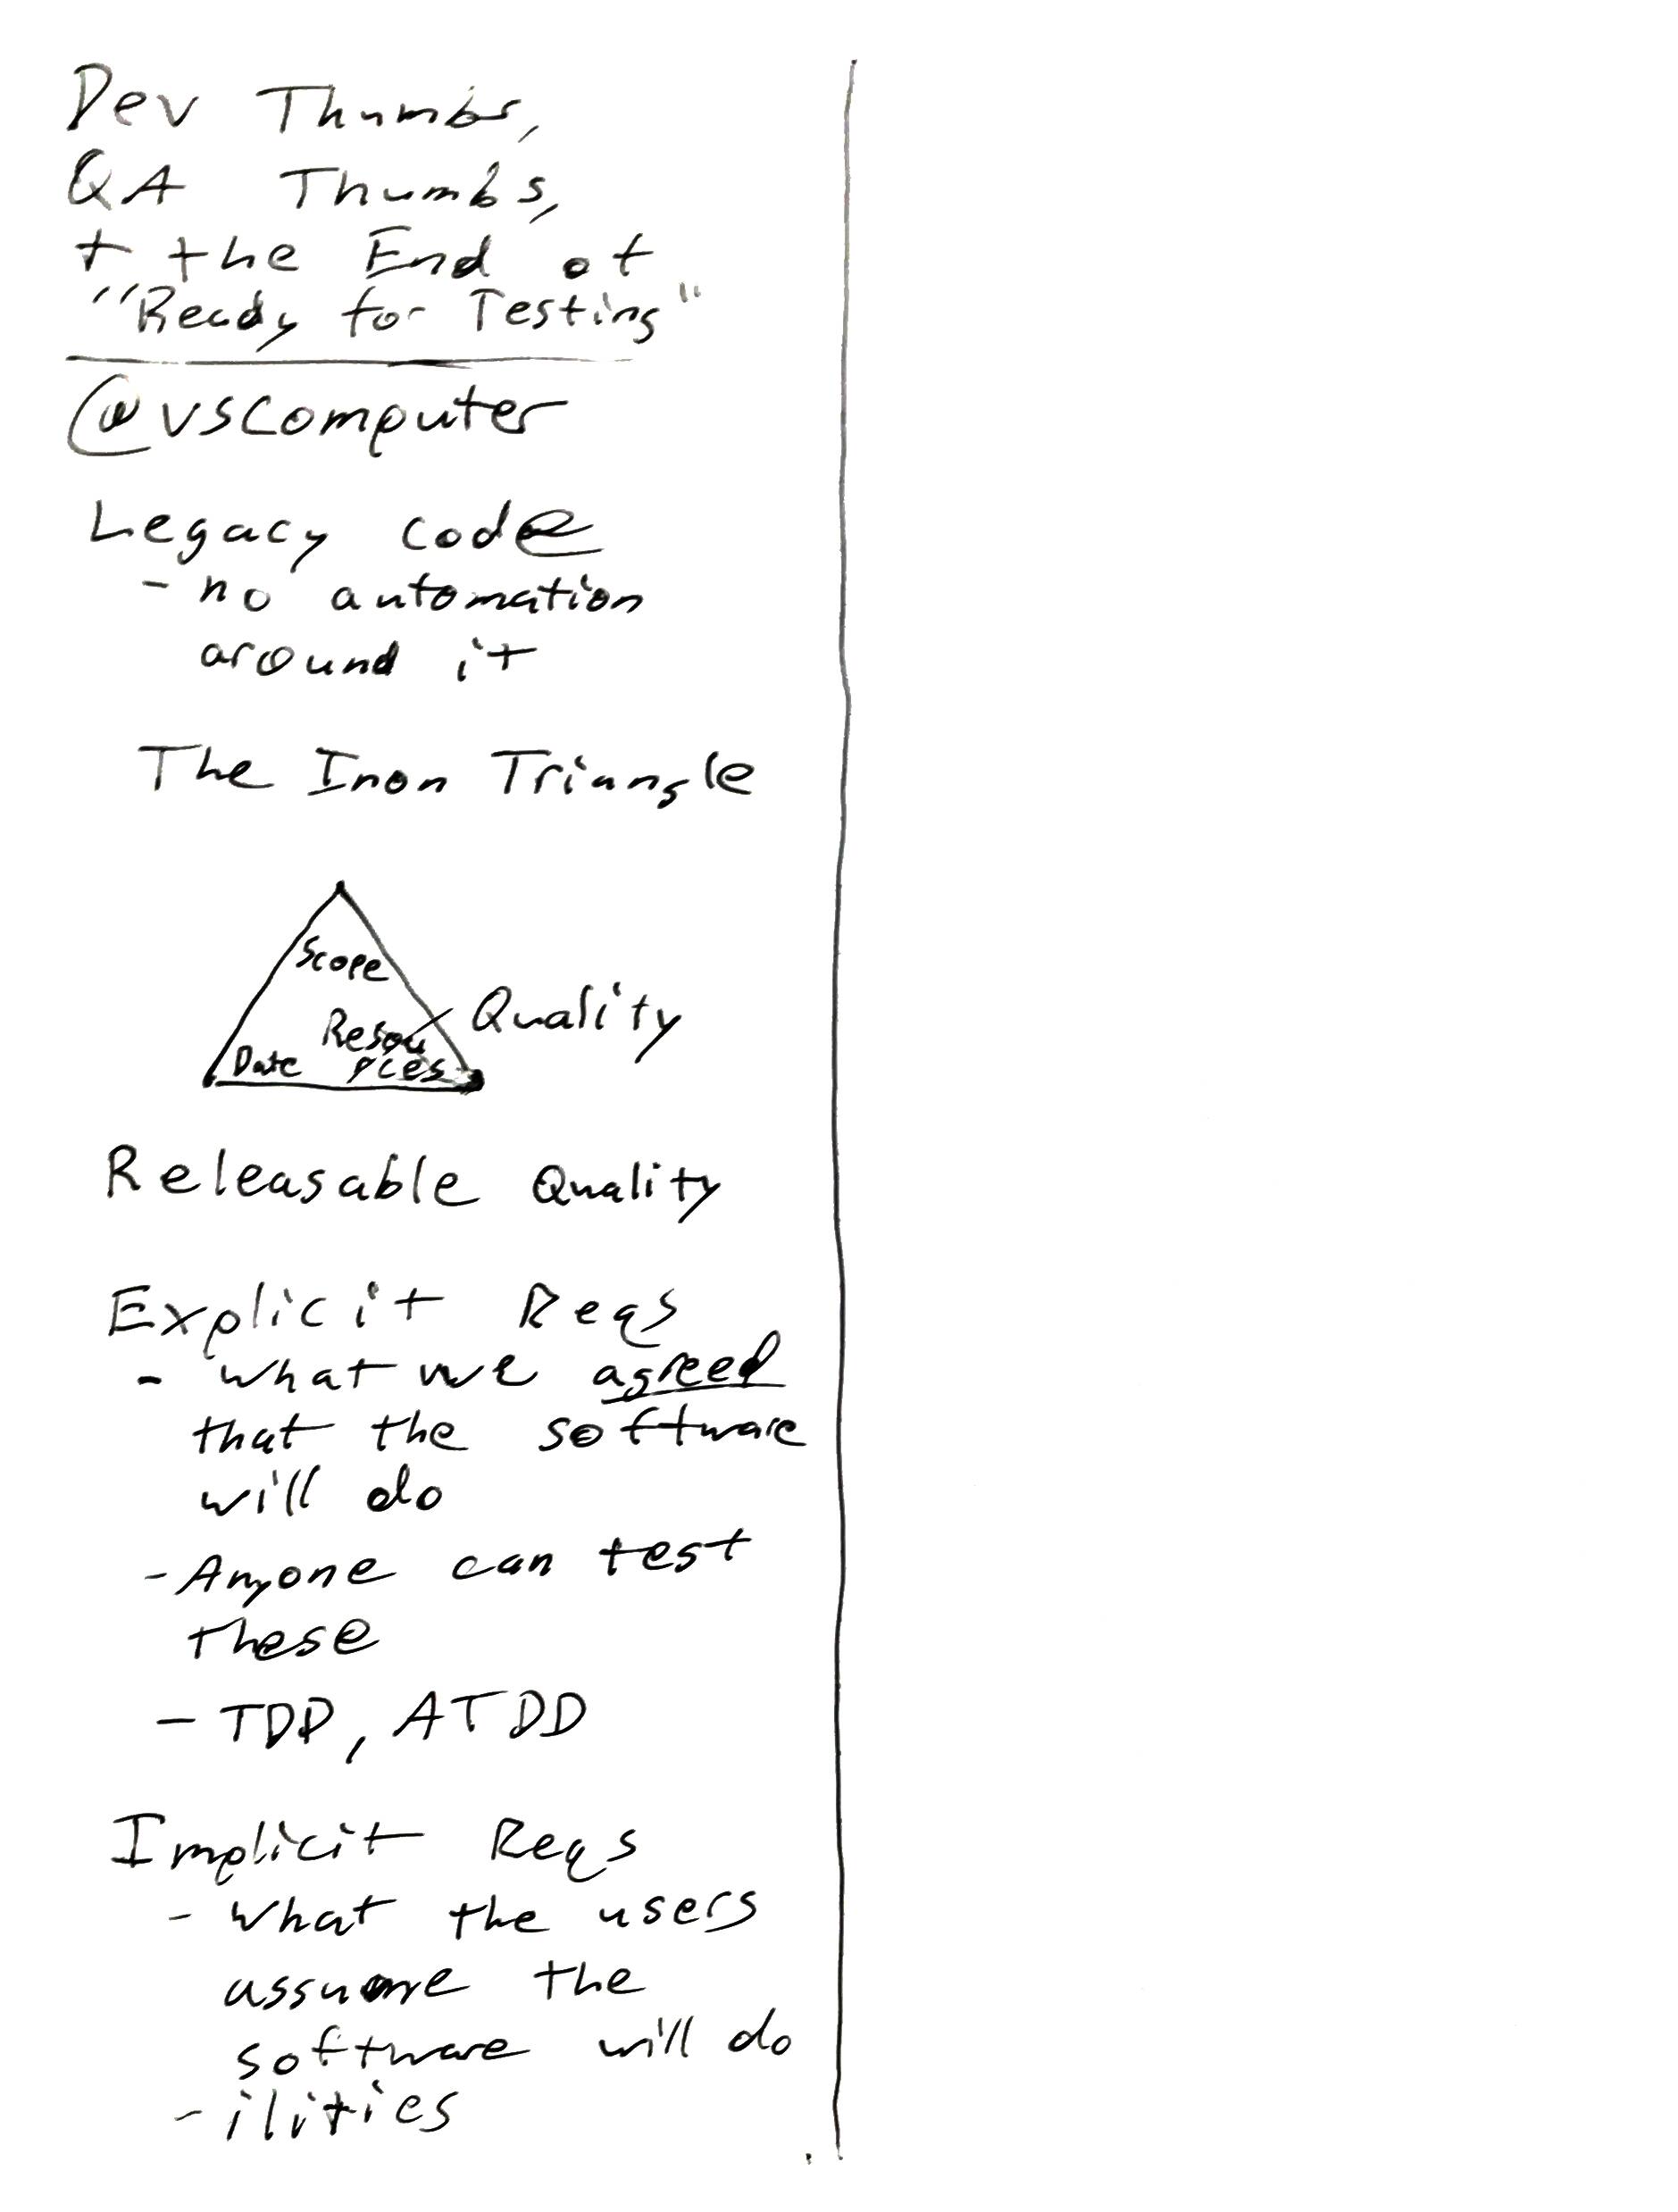 Dev Thumbs,
QA Thumbs,
+ the End of
"Ready for Testing"
@vscomputer
Legacy code
- no automation
around it
The Iron Triangle
Scope
Quality
Resou
Date rces
Releasable Quality
Explicit Reqs
- what we agreed
that the software
will do
- Anyone can test
these
- TDD, ATDD
Implicit Reqs
- What the users
assume the
software will do
- ilities